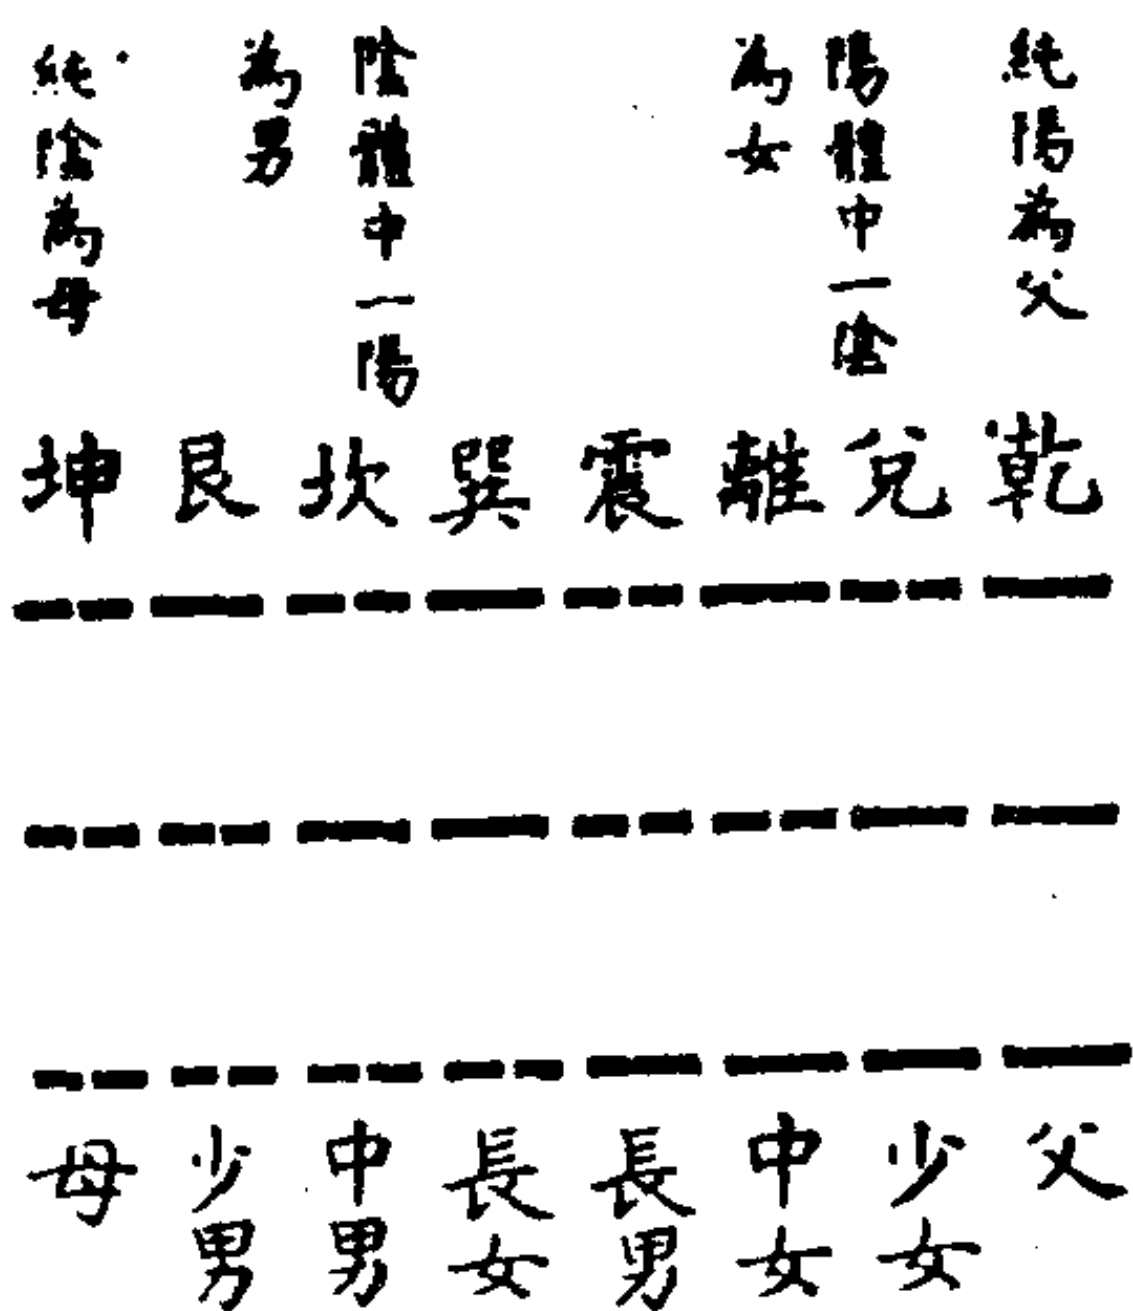 純陽為父
陽體中一陰
為女
陰體中一陽
為男
純陰為母
乾
兌
離
震
巽
坎
艮
坤
父
少女
中女
長男
長女
中男
少男
母